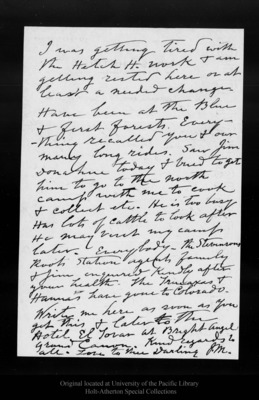 I was getting tired with
the Hetch H. work & am
getting rested here or at
least a needed change.
Have been at the Blue
& first forests. Every-
thing recalled you & our
many long rides. Saw Jim
Donahue today & tried to get
him to go to the north
camp with me to cook
& collect etc. He is too busy
Has lots of cattle to look after
He may visit my camp
later. Everybody - The Stevensons
Root, Station agents family
& Jim, enquired kindly after
your health. The &
Hannas have gone to Colorado.
Write me here as soon as you
get this, & later to the
Hotel El Tovar at Bright Angel
Grand Canyon. Kind regards to
all. Love to thee Darling J.M.
Original located at University of the Pacific Library
Holt-Atherton Special Collections